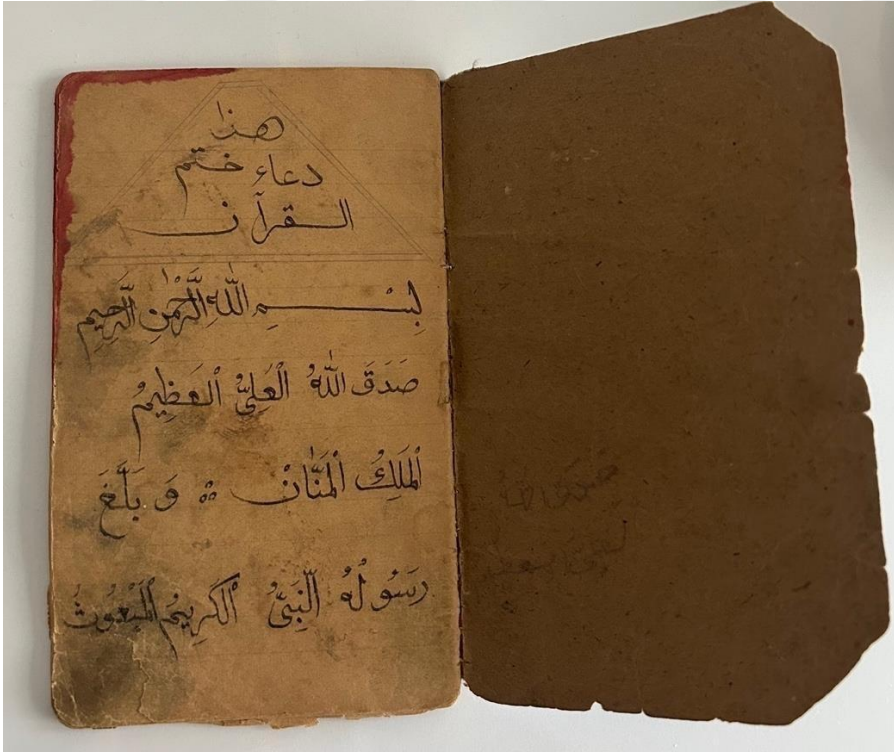 هذا
دعاء ختم
القرآن
بِسْمِ اللّٰهِ الرَّحْمٰنِ الرَّحِيمِ
صَدَقَ اللّٰهُ الْعَلِيُّ الْعَظِيمُ
الْمَلِكُ الْمَنَّانْ ؞ وَ بَلَّغَ
رَسُولُهُ النَّبِيُّ الْكَرِيمُ الْمَبْعُوثُ